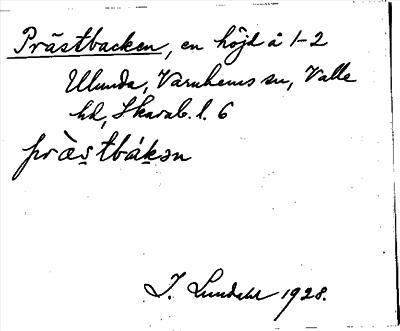 Prästbacken, en höjd å 1-2
Ulunda, Varnhems sn, Valle
hd, Skarab. l. 6
pràs̱tbák̠ən
I. Lundahl 1928.